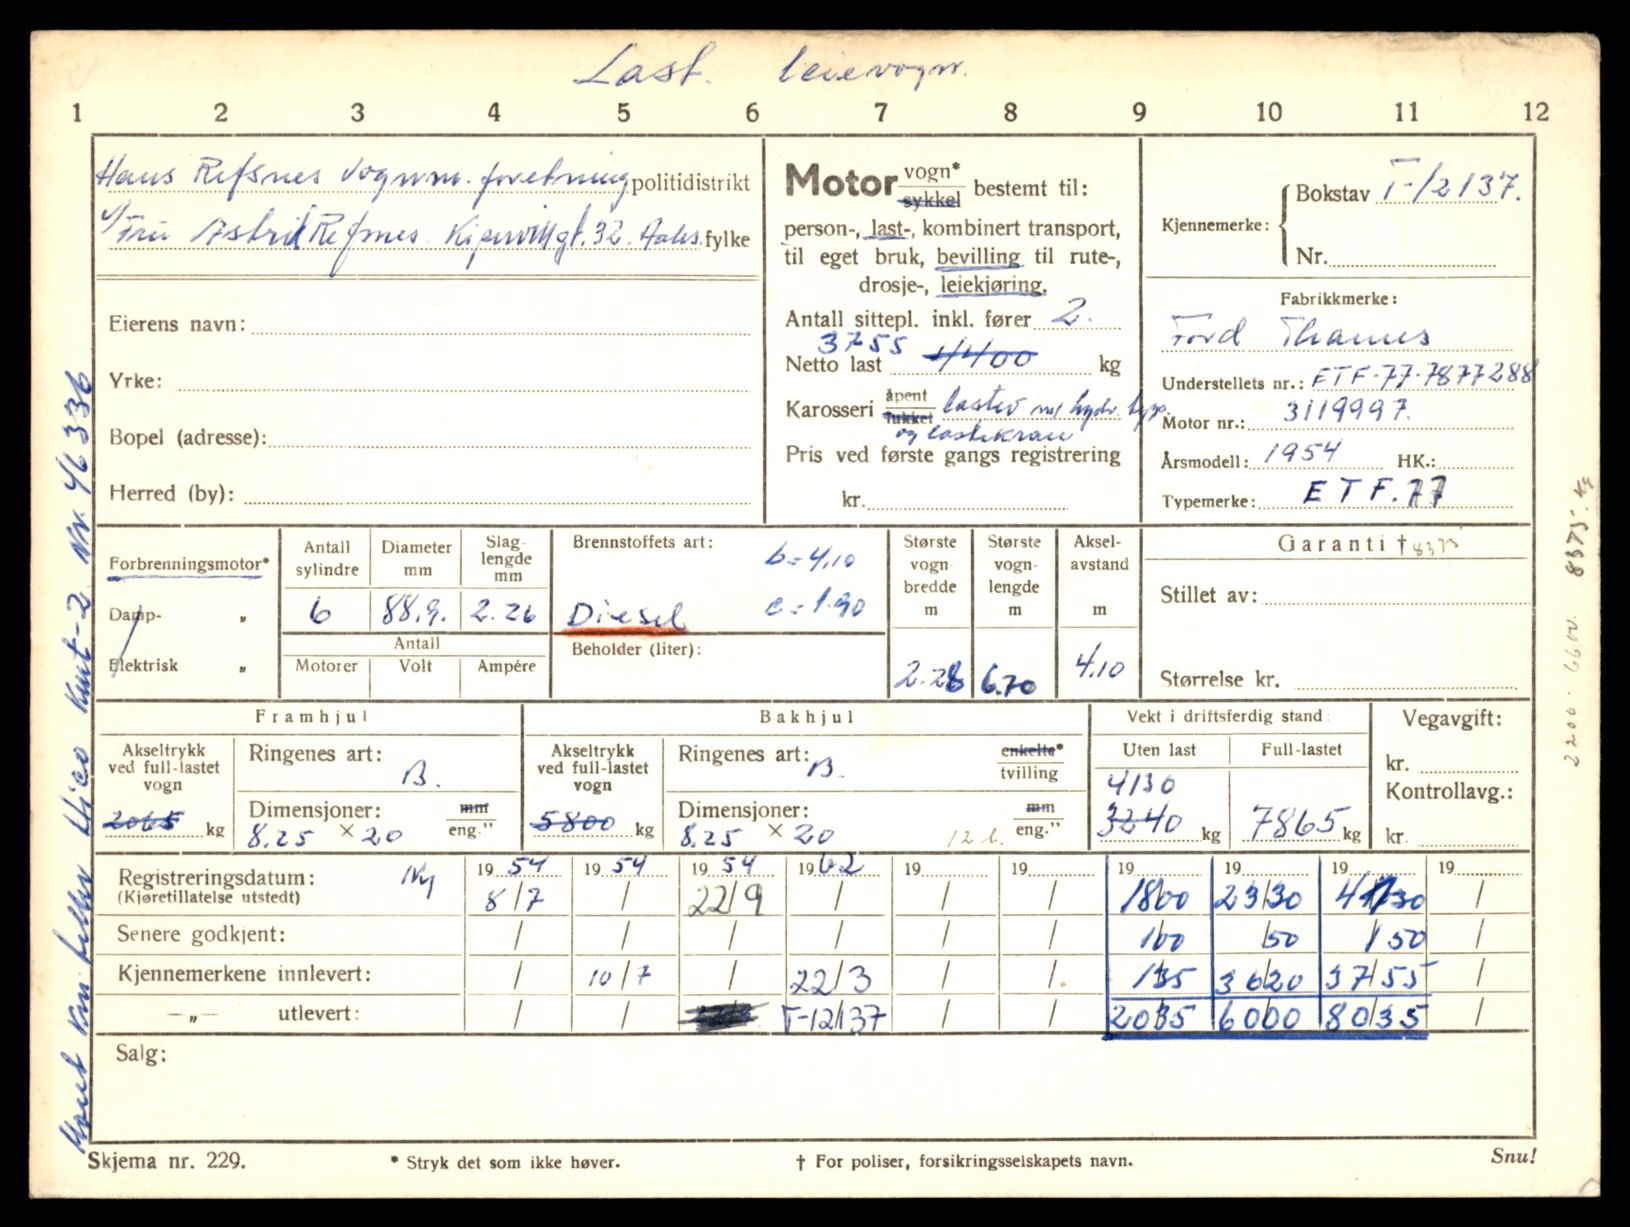 Last. leievogn.
1 2 3 4 5 6 7 8 9 10 11 12
Hans Refsnes vognm. forretning politidistrikt
v/ Fru Astrid Refsnes. Kipervikgt. 32. Aales. fylke
Eierens navn:
Yrke:
Bopel (adresse):
Herred (by):
Motor vogn* sykkel bestemt til:
person-, last-, kombinert transport,
til eget bruk, bevilling til rute-,
drosje-, leiekjøring.
Antall sittepl. inkl. fører 2.
3755
Netto last 4400 kg
Karosseri åpent lukket lastev m/ hydr. tipp.
og lastekran
Pris ved første gangs registrering
kr.
Kjennemerke: Bokstav T-12137.
Nr.
Fabrikkmerke:
Ford Thames
Understellets nr.: ETF-77-7877288
Motor nr.: 3119997.
Årsmodell: 1954 HK.:
Typemerke: ETF.77
Forbrenningsmotor*
Damp- „
Elektrisk „
Antall sylindre
6
Diameter mm
88.9.
Slaglengde mm
2.26
Antall
Motorer Volt Ampére
Brennstoffets art: b = 4,10
Diesel c = 1.90
Beholder (liter):
Største vogn bredde m
2.28
Største vogn-lengde m
6.70
Aksel-avstand m
4.10
Garanti † 8375
Stillet av:
Størrelse kr.
Framhjul
Akseltrykk ved full-lastet vogn
2065 kg
Ringenes art: B.
Dimensjoner: mm eng."
8.25 × 20
Bakhjul
Akseltrykk ved full-lastet vogn
5800 kg
Ringenes art: B. enkelte* tvilling
Dimensjoner: mm eng."
8.25 × 20 12 l.
Vekt i driftsferdig stand
Uten last Full-lastet
4130
3240 kg 7865 kg
Vegavgift:
kr.
Kontrollavg.:
kr.
Registreringsdatum: Ny 19 54 19 54 19 54 19 62 19 19 19 19 19 19
(Kjøretillatelse utstedt) 8/7 / 22/9 / / / 1800 2330 4130 /
Senere godkjent: / / / / / / 100 50 150 /
Kjennemerkene innlevert: / 10/7 / 22/3 / / 135 3620 3755 /
—„— utlevert: / / T-12137 / / 2035 6000 8035 /
Salg:
Skjema nr. 229.
* Stryk det som ikke høver.
† For poliser, forsikringsselskapets navn.
Snu!
Hico Knut-2 Nr. 46336
2200. 6600. 8375.